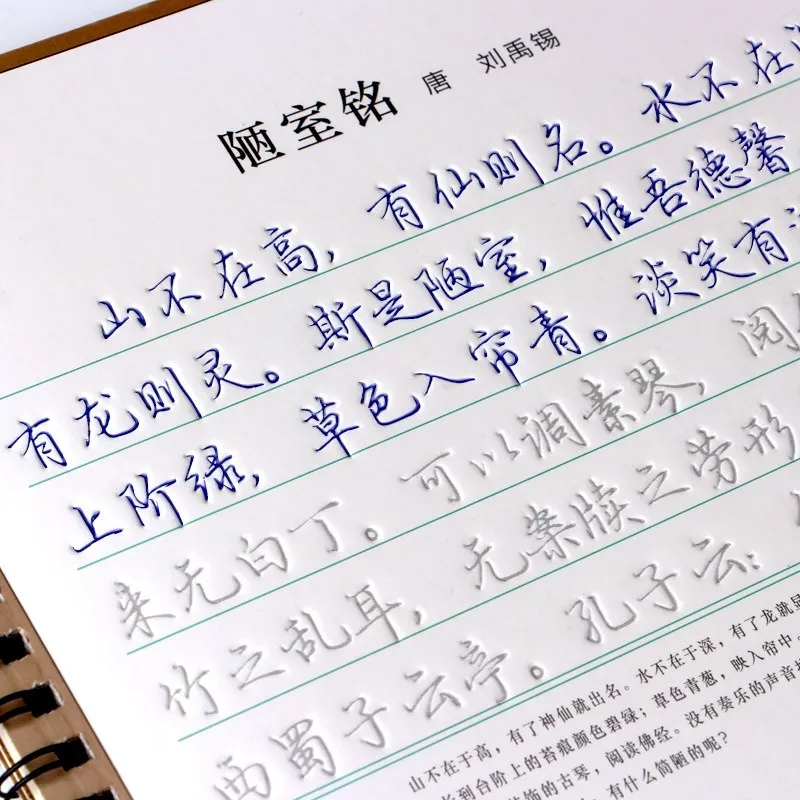 陋室铭 唐 刘禹锡
山不在高，有仙则名。水不在
有龙则灵。斯是陋室，惟吾德馨
上阶绿，草色入帘青。谈笑有
来无白丁。可以调素琴，阅
竹之乱耳，无案牍之劳形
西蜀子云亭。孔子云：
山不在于高，有了神仙就出名。水不在于深，有了龙就显
长到台阶上的苔痕颜色碧绿；草色青葱，映入帘中。
饰的古琴，阅读佛经。没有奏乐的声音
有什么简陋的呢？